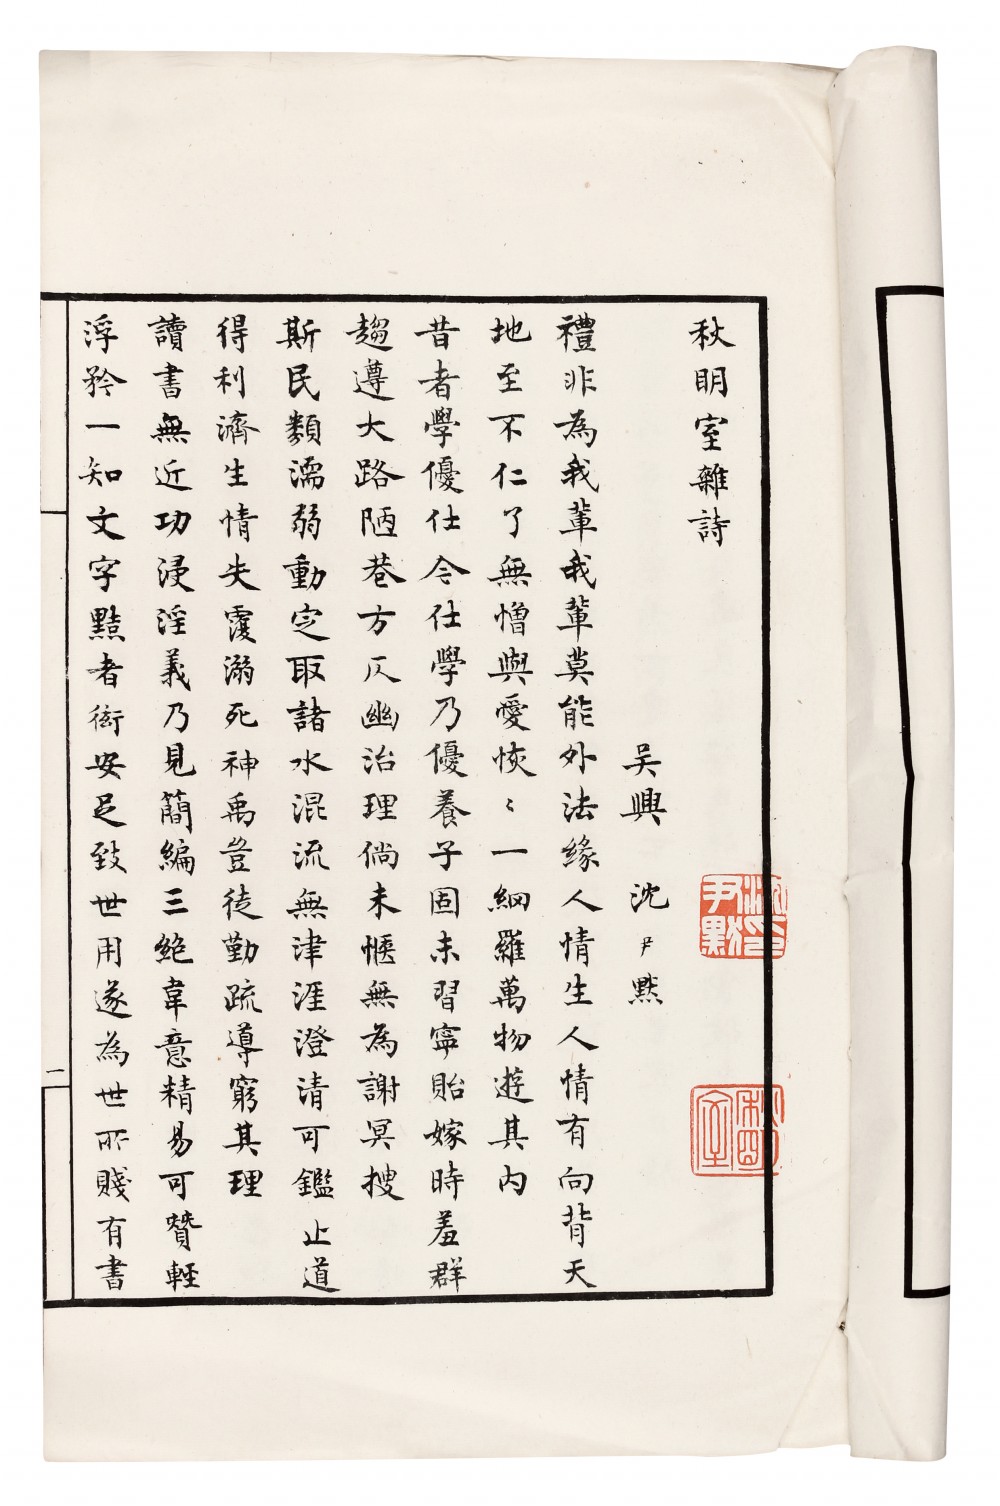 秋明室雜詩
吳興 沈尹默
禮非為我輩我輩莫能外法緣人情生人情有向背天
地至不仁了無憎與愛恢〻一網羅萬物遊其內
昔者學優仕今仕學乃優養子固未習寧貽嫁時羞群
趨遵大路陋巷方仄幽治理倘未愜無為謝冥搜
斯民類濡弱動定取諸水混流無津涯澄清可鑑止道
得利濟生情失覆溺死神禹豈徒勤疏導窮其理
讀書無近功浸淫義乃見簡編三絕韋意精易可贊輕
浮矜一知文字黠者衒安足致世用遂為世所賤有書
一
沈尹默印
秋明室